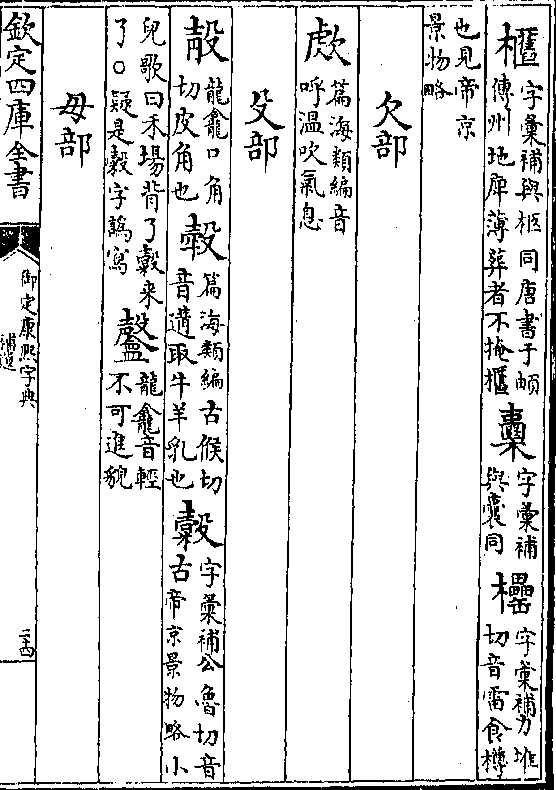 字彙補與柩同唐書于頔
傳州地庳薄葬者不掩
字彙補
與囊同
字彙補力堆
切音雷食樽
也見帝京
景物略
欠部
篇海類編音
呼溫吹氣息
殳部
龍龕口角
切皮角也
篇海類編古候切
音遘取牛羊乳也
字彙補公魯切音
古帝京景物略小
兒歌曰禾場背了穀来
了○疑是穀字譌寫
龍龕音輕
不可進貌
毋部
欽定四庫全書
御定康熙字典
補遺
二十四